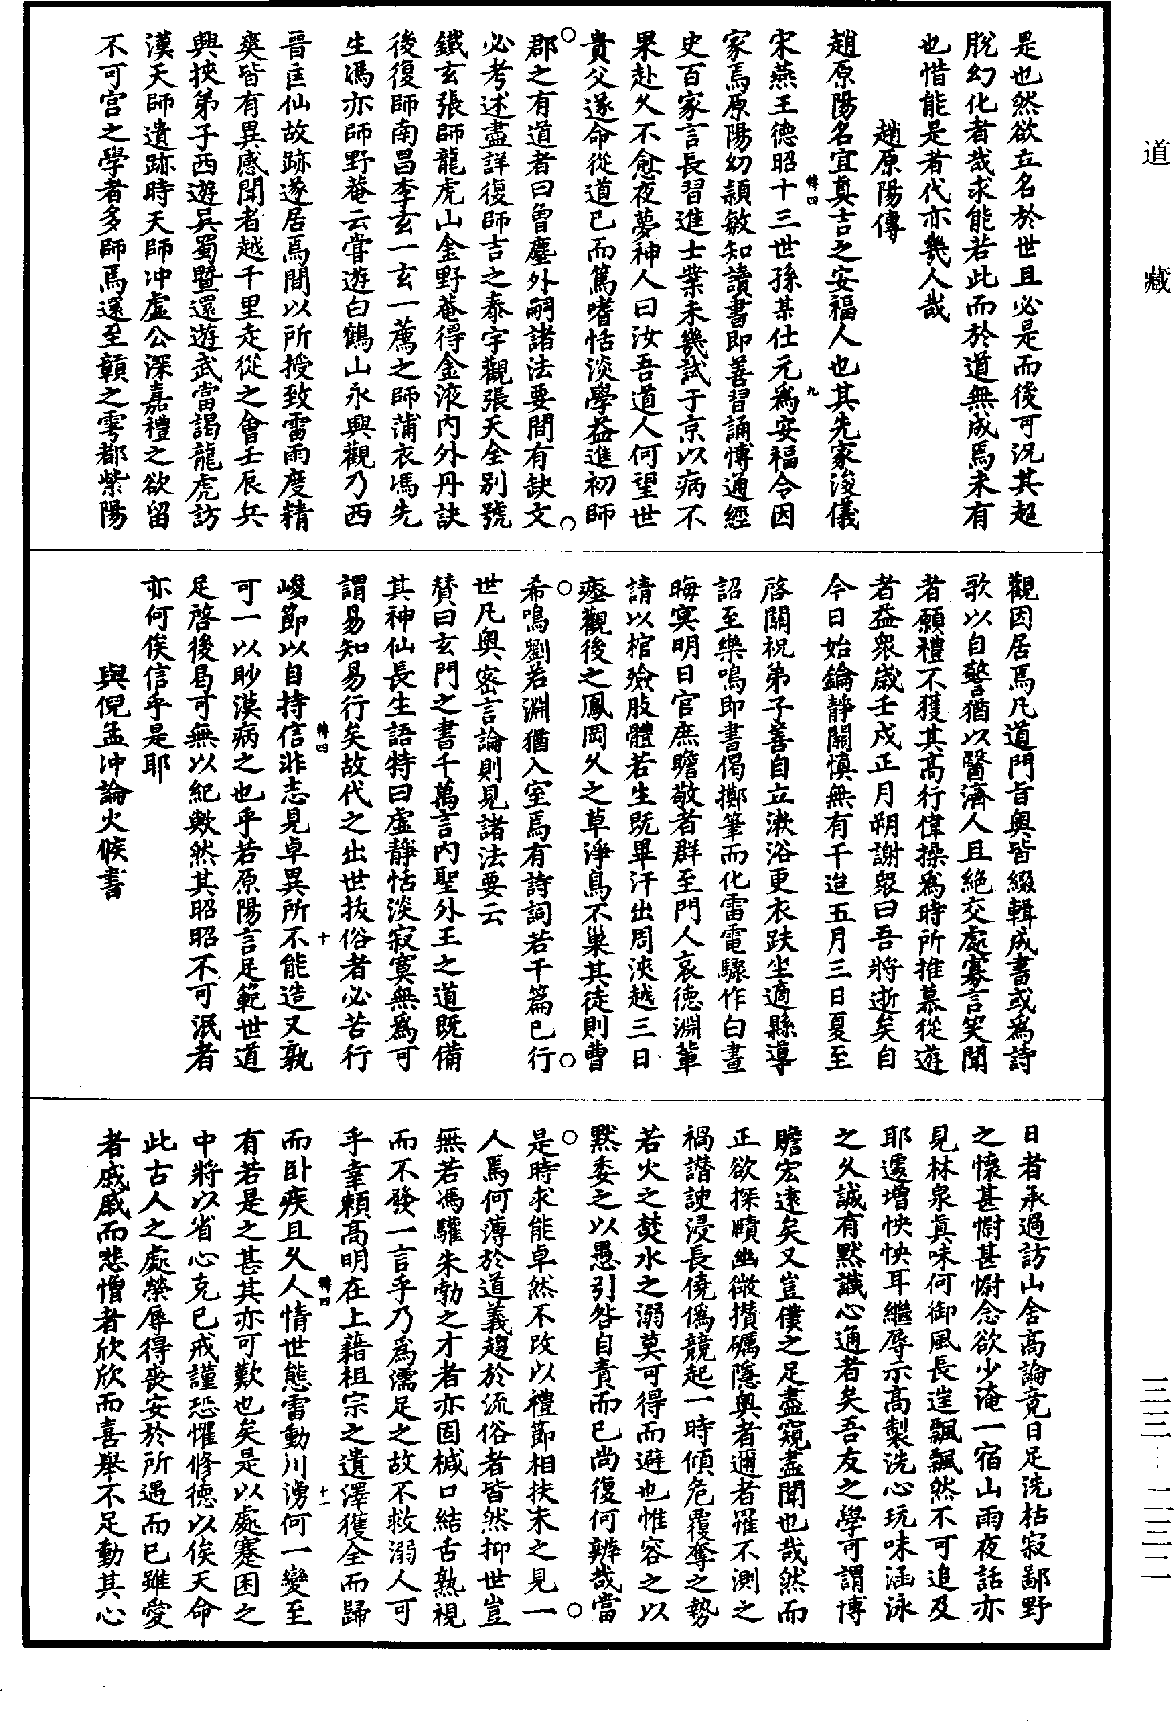 道藏
是也然欲立名於世且必是而後可況其超
脫幻化者哉求能若此而於道無成焉未有
也惜能是者代亦幾人哉
趙原陽傳
趙原陽名宜真吉之安福人也其先家浚儀
宋燕王德昭十三世孫某仕元為安福令因
家焉原陽幼穎敏知讀書即善習誦博通經
史百家言長習進士業未幾試于京以病不
果赴久不愈夜夢神人曰汝吾道人何望世
貴父遂命從道已而篤嗜恬淡學益進初師
郡之有道者曰曾塵外嗣諸法要間有缺文
必考述盡詳復師吉之泰宇觀張天全別號
鐵玄張師龍虎山金野菴得金液內外丹訣
後復師南昌李玄一玄一薦之師蒲衣馮先
生馮亦師野菴云嘗遊白鶴山永興觀乃西
晉匡仙故跡遂居焉間以所授致雷雨度精
爽皆有異感聞者越千里走從之會壬辰兵
興挾弟子西遊吳蜀暨還遊武當謁龍虎訪
漢天師遺跡時天師冲虛公深嘉禮之欲留
不可宮之學者多師焉還至贛之雩都紫陽
觀因居焉凡道門旨奧皆綴輯成書或為詩
歌以自警猶以醫濟人且絕交處寡言笑聞
者願禮不獲其高行偉操為時所推慕從遊
者益眾歲壬戌正月朔謝眾曰吾將逝矣自
今日始鑰靜關慎無有干迨五月三日夏至
啓關祝弟子善自立漱浴更衣趺坐適縣導
詔至樂鳴即書偈擲筆而化雷電驟作白晝
晦冥明日官庶瞻敬者群至門人哀德淵輩
請以棺殮肢體若生既畢汗出周浹越三日
瘞觀後之鳳岡久之草淨鳥不巢其徒則曹
希鳴劉若淵猶入室焉有詩詞若干篇已行
世凡奧密言論則見諸法要云
贊曰玄門之書千萬言內聖外王之道既備
其神仙長生語特曰虛靜恬淡寂寞無為可
謂易知易行矣故代之出世拔俗者必苦行
峻節以自持信非志見卓異所不能造又孰
可一以眇漠病之也乎若原陽言足範世道
足啓後曷可無以紀歟然其昭昭不可泯者
亦何俟信乎是耶
與倪孟冲論火候書
日者承過訪山舍高論竟日足洗枯寂鄙野
之懷甚慰甚慰念欲少淹一宿山雨夜話亦
見林泉真味何御風長逝飄飄然不可追及
耶遽增怏怏耳繼辱示高製洗心玩味涵泳
之久誠有默識心通者矣吾友之學可謂博
贍宏遠矣又豈僕之足盡窺盡聞也哉然而
正欲探賾幽微攢礪隱奧者邇者罹不測之
禍譖諛浸長僥偽競起一時傾危覆奪之勢
若火之焚水之溺莫可得而避也惟容之以
默委之以愚引咎自責而已尚復何辨哉當
是時求能卓然不改以禮節相扶未之見一
人焉何薄於道義趨於流俗者皆然抑世豈
無若馮驩朱勃之才者亦固緘口結舌熟視
而不發一言乎乃為濡足之故不救溺人可
乎幸賴高明在上藉祖宗之遺澤獲全而歸
而卧疾且久人情世態雷動川湧何一變至
有若是之甚其亦可歎也矣是以處蹇困之
中將以省心克己戒謹恐懼修德以俟天命
此古人之處榮辱得喪安於所遇而已雖愛
者戚戚而悲憎者欣欣而喜舉不足動其心
轉四 九
轉四 十
轉四 十一
三三—二二二